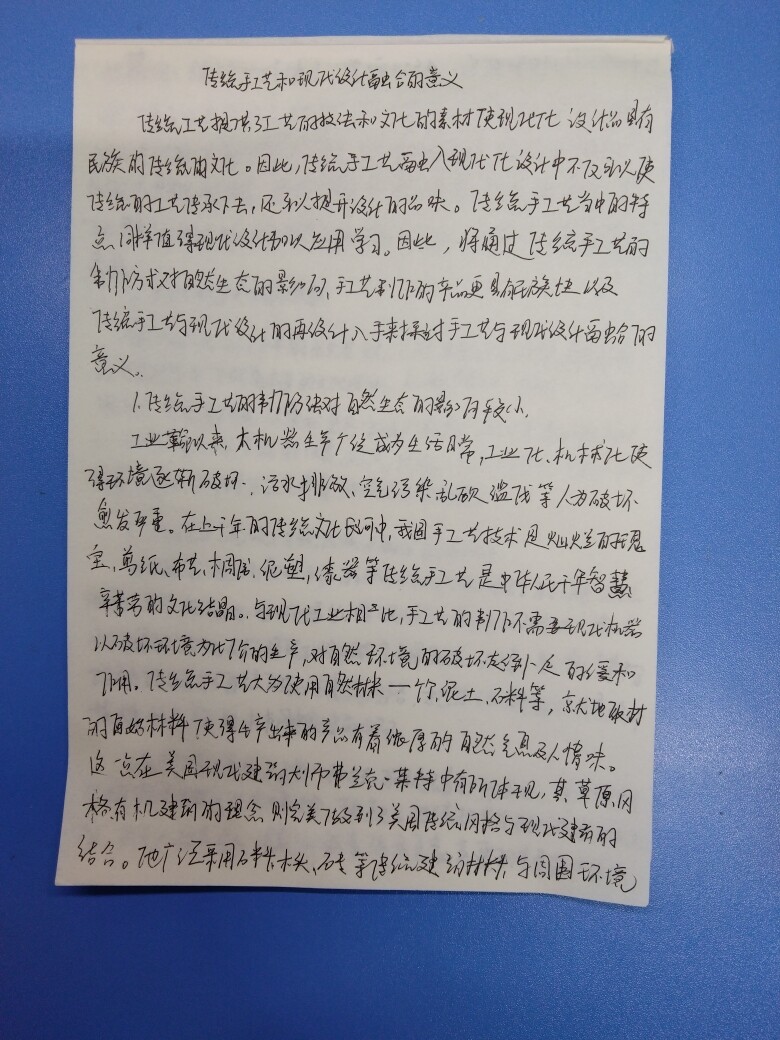 传统手工艺和现代设计融合的意义
传统工艺提供了工艺的技法和文化的素材使现代化设计品具有
民族的传统的文化。因此,传统手工艺融入现代化设计中不仅可以使
传统的工艺传承下去,还可以提升设计的品味。传统手工艺当中的特
点,同样值得现代设计加以应用学习。因此,将通过传统手工艺的
制作方式对自然生态的影响,手工艺制作的产品更具民族性以及
传统手工艺与现代设计的再设计入手来探讨手工艺与现代设计融合的
意义。
1.传统手工艺的制作方法对自然生态的影响较小,
工业革命以来,大机器生产今位成为生活日常,工业化、机械化使
得环境逐渐破坏,污水排放、空气污染、乱砍滥伐等人为破坏
愈发严重。在上千年的传统文化长河中,我国手工艺技术是灿烂的瑰
宝,剪纸、布艺、桐油、泥塑,漆器等传统手工艺是中华人民千年智慧
辛苦劳的文化结晶。与现代工业相对比,手工艺的制作不需要现代机器
以破坏环境为代价的生产,对自然环境的破坏起到一定的缓和
作用。传统手工艺大为使用自然材料一竹、泥土、石料等,就地取材
的自然材料使得生产出来的产品有着浓厚的自然气息及人情味。
这一点在美国现代建筑大师弗兰克·莱特中有所体现,其草原风
格、有机建筑的理念则完美做到了美国传统风格与现代建筑的
结合。他广泛采用石料、木头、砖等传统建筑材料,与周围环境